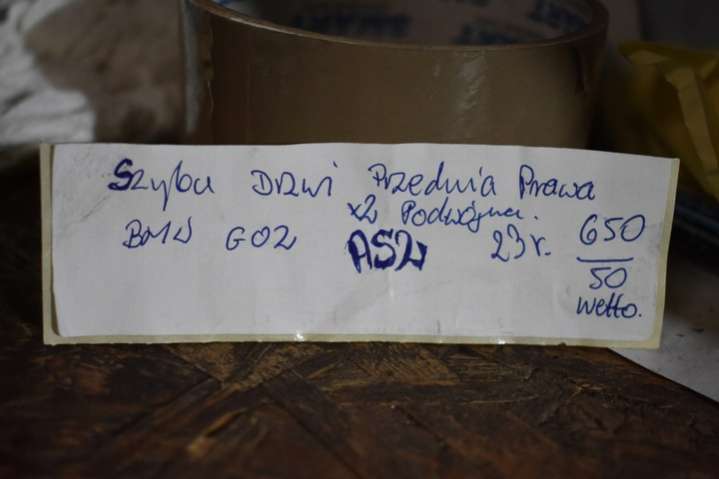 SMART
Szyba Drzwi Przednia Prawa
x2 Podwójna.
BMW G02 AS2 23r. 650
50
netto.